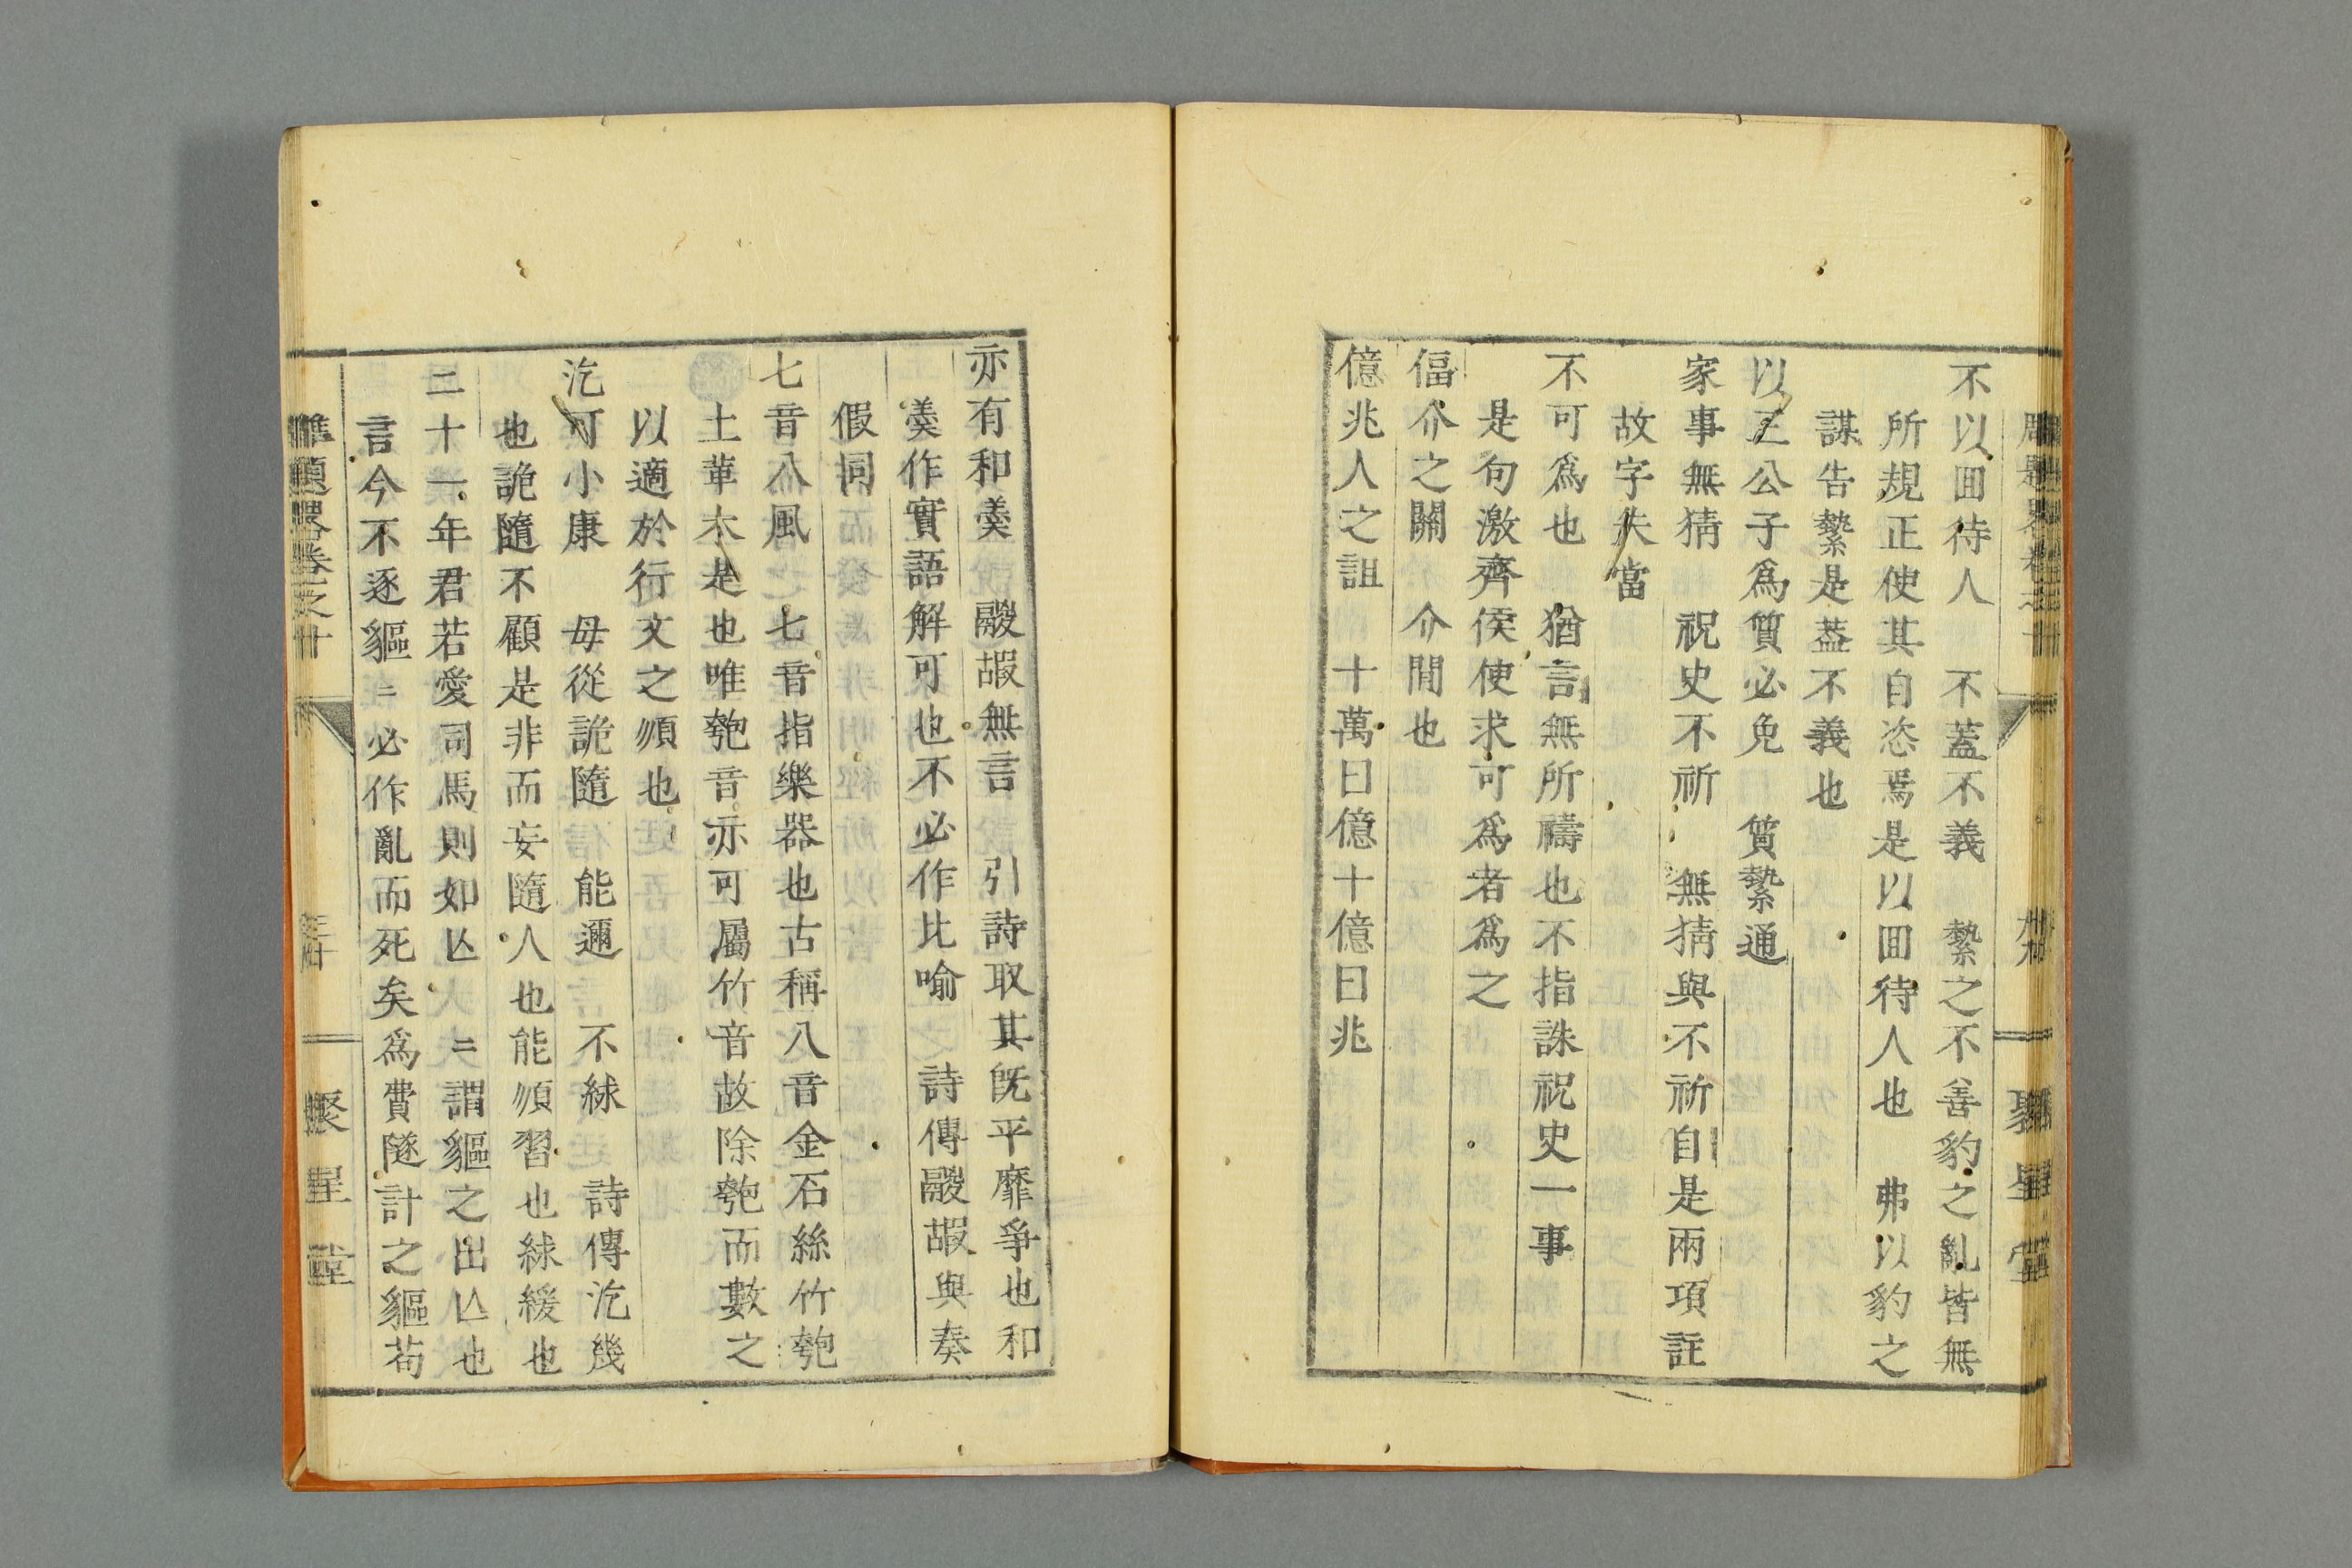 不以回待人　不蓋不義　縶之不善豹之亂皆無
所規正使其自恣焉是以回待人也　弗以豹之
謀告縶是蓋不義也
以三公子爲質必免　質縶通
家事無猜　祝史不祈　無猜與不祈自是兩項註
故字失當
不可爲也　猶言無所禱也不指誅祝史一事
是句激齊侯使求可爲者爲之
偪介之關　介間也
億兆人之詛　十萬曰億十億曰兆
聚星堂
亦有和羹　鬷嘏無言　引詩取其既平靡爭也和
羹作實語解可也不必作比喻　詩傳鬷嘏與奏
假同
七音八風　七音指樂器也古稱八音金石絲竹匏
土革木是也唯匏音亦可屬竹音故除匏而數之
以適於行文之順也
汔可小康　毋從詭隨　能邇　不絿　詩傳汔幾
也詭隨不顧是非而妄隨人也能順習也絿緩也
二十一年君若愛司馬則如亾　亾謂貙之出亾也
言今不逐貙貙必作亂而死矣爲費隧計之貙苟
雕題畧卷之廿
聚星堂